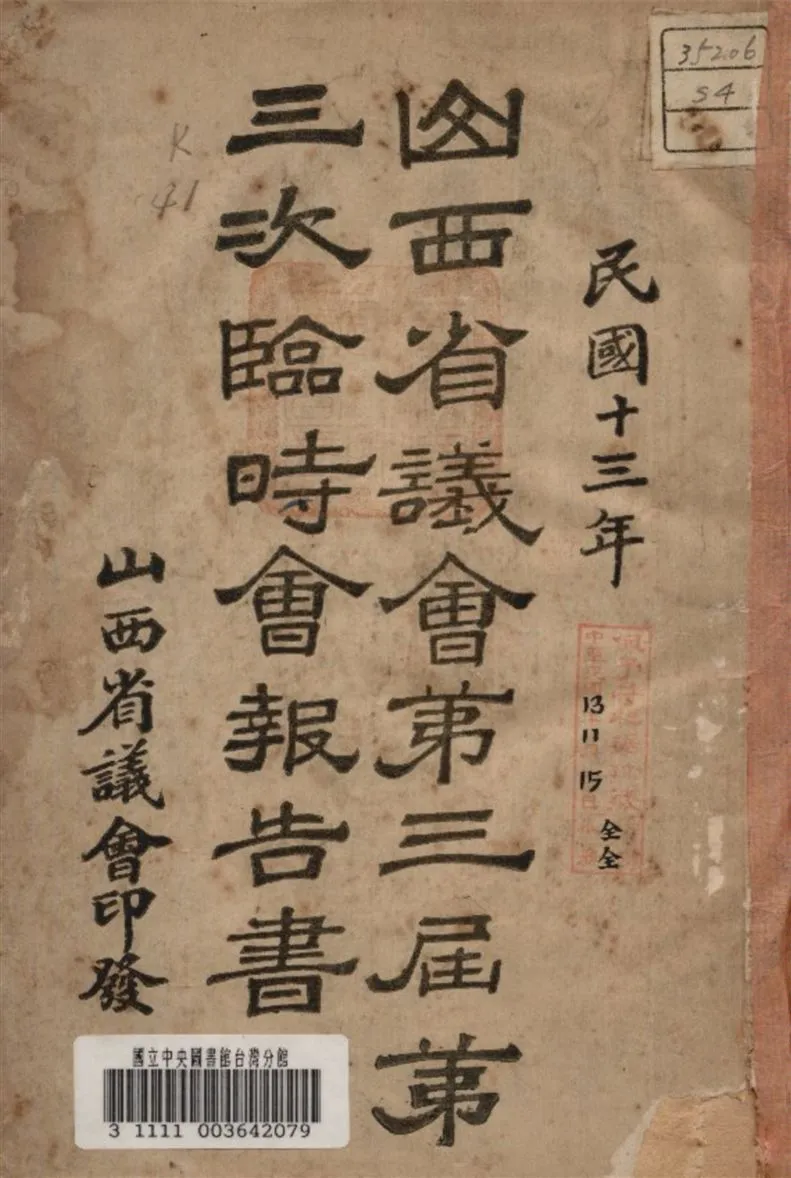 民國十三年
山西省議會第三屆第
三次臨時會報告書
山西省議會印發
35206
S4
K
41
13
11
15
全
全
國立中央圖書館台灣分館
3 1111 003642079